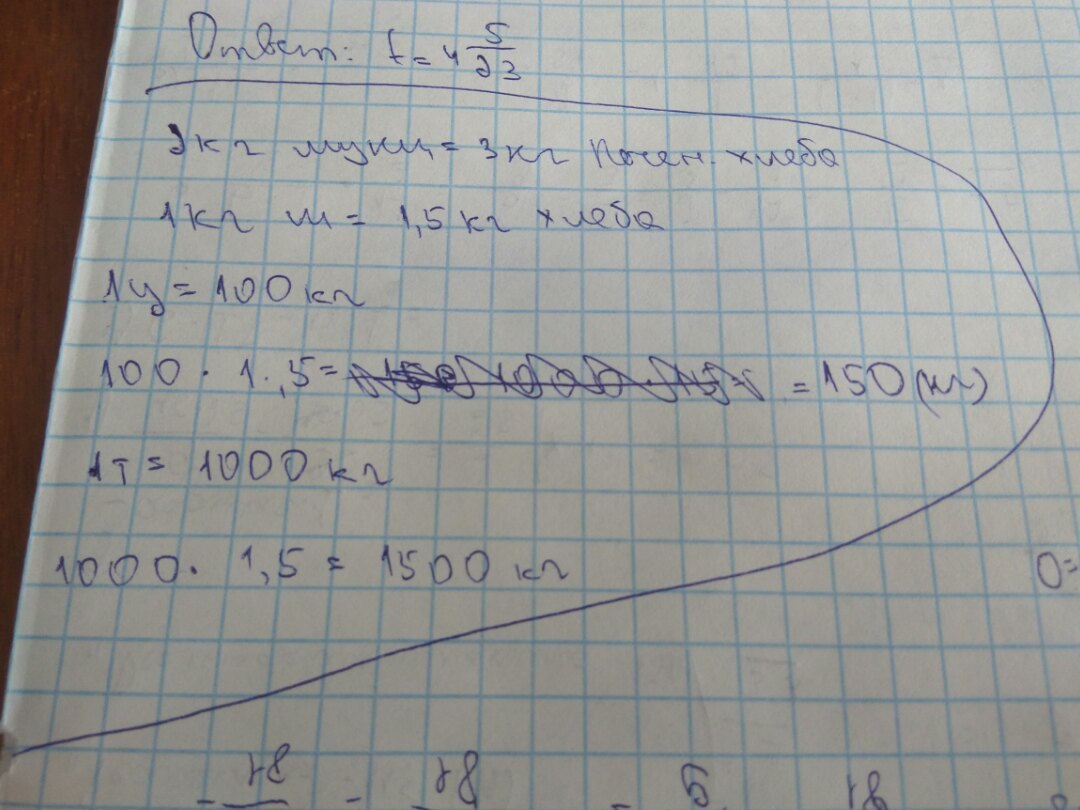 Ответ: t = 4 5/23
2кг муки = 3кг печен. хлеба
1кг м = 1,5кг хлеба
1ц = 100кг
100 · 1,5 = = 150(кг)
1т = 1000кг
1000 · 1,5 = 1500 кг
0=